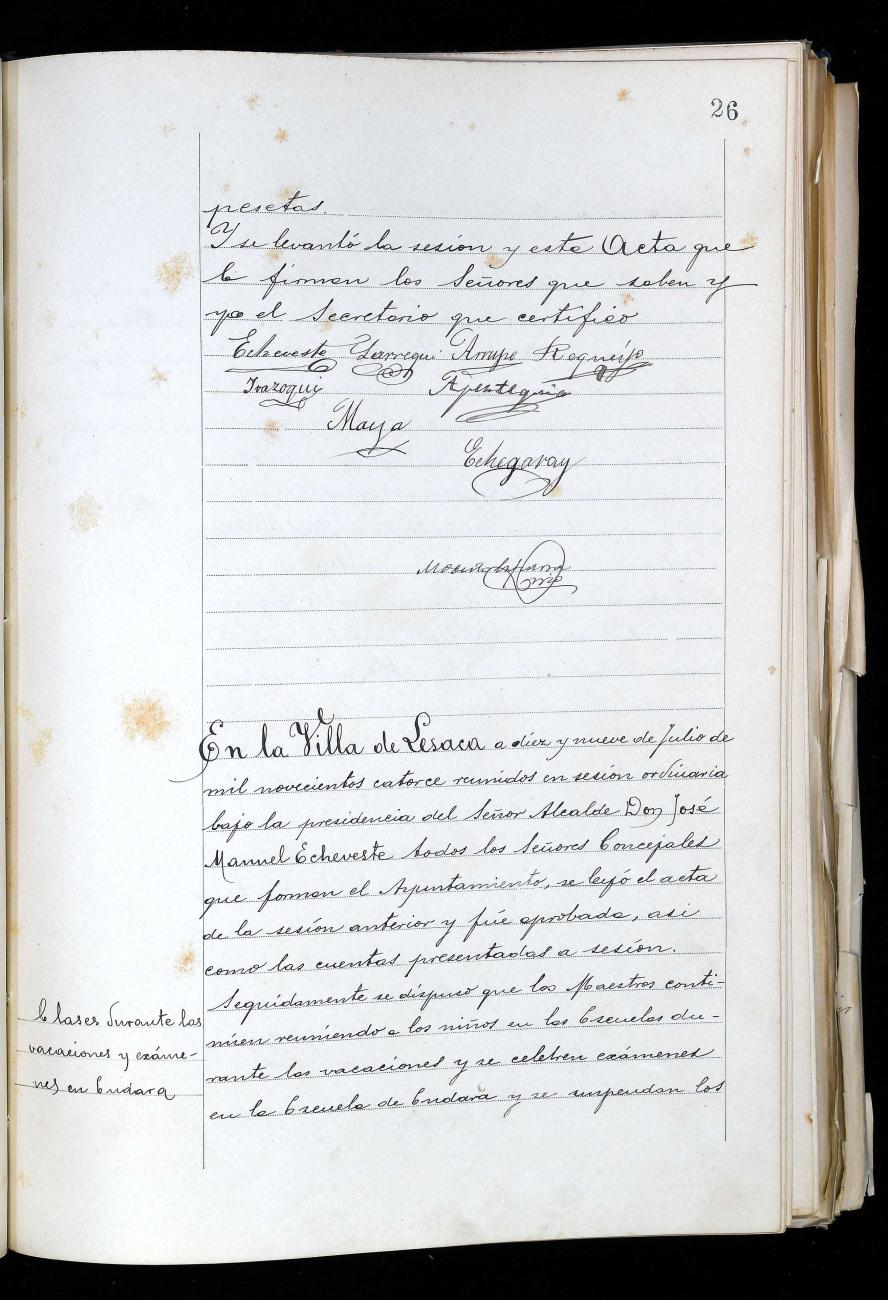 26
pesetas.
Y se levantó la sesión y esta Acta que
la firman los Señores que saben y
yo el Secretario que certifico
Echeveste Yarregui Arrupe Requejo
Irazoqui Apesteguia
Maya
Echegaray
En la Villa de Lesaca a diez y nueve de Julio de
mil novecientos catorce reunidos en sesión ordinaria
bajo la presidencia del Señor Alcalde Don José
Manuel Echeveste todos los Señores Concejales
que forman el Ayuntamiento, se leyó el acta
de la sesión anterior y fúe aprobada, asi
como las cuentas presentadas a sesión.
Seguidamente se dispuso que los Maestros conti-
núen reuniendo a los niños en las Escuelas du-
rante las vacaciones y se celebren exámenes
en la Escuela de Endara y se suspendan los
Clases durante las
vacaciones y exáme-
nes en Endara